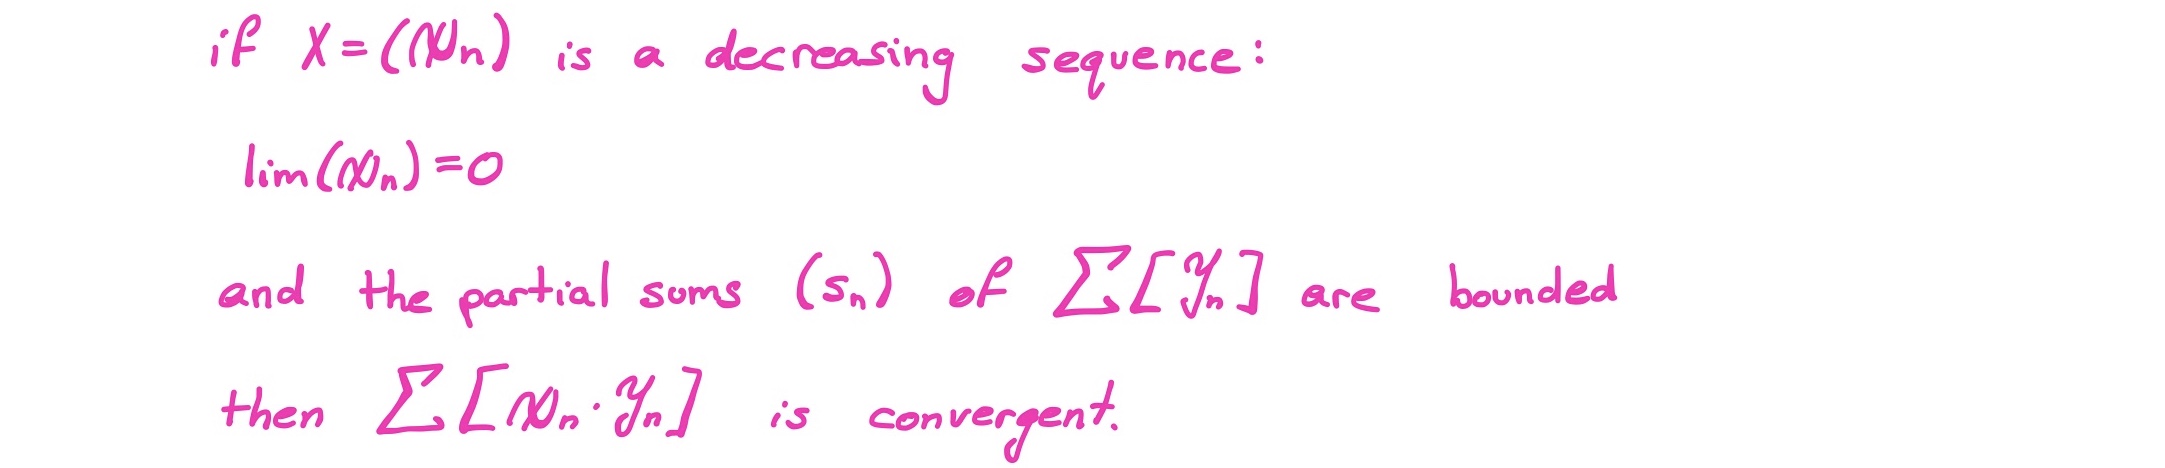 if X=(xₙ) is a decreasing sequence:
lim(xₙ)=0
and the partial sums (sₙ) of Σ[yₙ] are bounded
then Σ[xₙ·yₙ] is convergent.